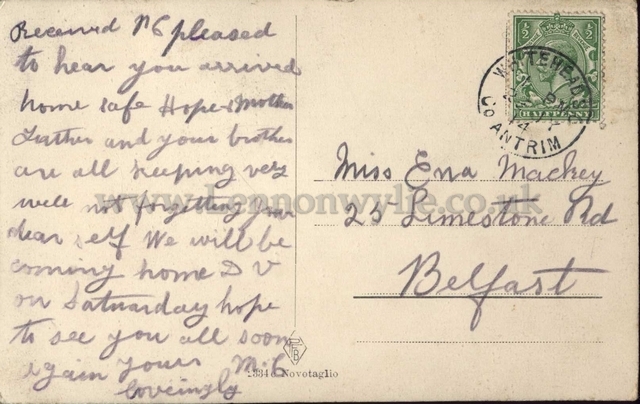 Received PC pleased
to hear you arrived
home safe Hope Mother
Father and your brother
are all keeping very
well not forgetting your
dear self We will be
coming home D V
on Saturday hope
to see you all soon
again yours M.C
loveingly
½ ½
HALFPENNY
WHITEHEAD
Co ANTRIM
Miss Ena Mackey
25 Limestone Rd
Belfast
www.lennonwylie.co.uk
Novotaglio